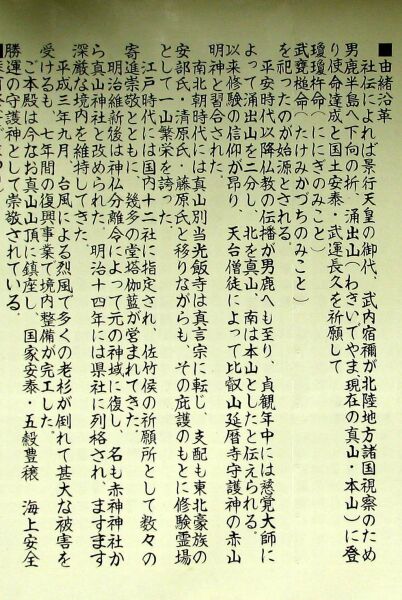 ■由緒沿革
社伝によれば景行天皇の御代、武内宿禰が北陸地方諸国視察のため
男鹿半島へ下向の折、涌出山（わきいでやま、現在の真山・本山）に登
り使命達成と国土安泰・武運長久を祈願して
瓊瓊杵命（ににぎのみこと）
武甕槌命（たけみかづちのみこと）
を祀ったのが始源とされる。
平安時代以降仏教の伝播が男鹿へも至り、貞観年中には慈覚大師に
よって涌出山を二分し、北を真山、南は本山としたと伝えられる。
以来修験の信仰が昂り、天台僧徒によって比叡山延暦寺守護神の赤山
明神と習合された。
南北朝時代には真山別当光飯寺は真言宗に転じ、支配も東北豪族の
安部氏・清原氏・藤原氏と移りながらも、その庇護のもとに修験霊場
として一山繁栄を誇った。
江戸時代には国内十二社に指定され、佐竹侯の祈願所として数々の
寄進崇敬とともに、幾多の堂塔伽藍が営まれてきた。
明治維新後は神仏分離令によって元の神域に復し、名も赤神神社か
ら真山神社と改められた。明治十四年には県社に列格され、ますます
深厳な境内を維持してきた。
平成三年九月、台風による烈風で多くの老杉が倒れて甚大な被害を
受けるも、七年間の復興事業で境内整備が完工した。
ご本殿は今なお真山山頂に鎮座し、国家安泰・五穀豊穣　海上安全
勝運の守護神として崇敬されている。